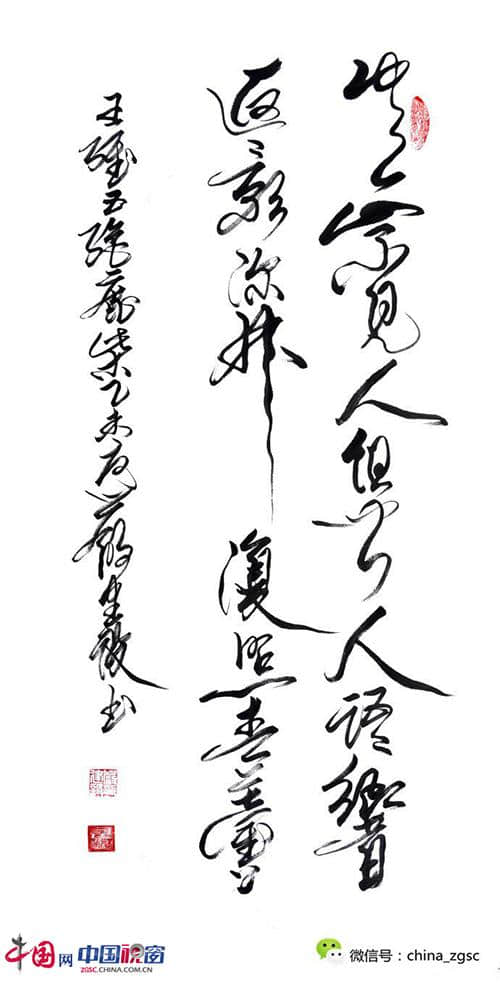 空山不見人但聞人語響
返景入深林復照青苔上
王維五絕鹿柴乙未夏書
中国网 中国视窗
ZGSC.CHINA.COM.CN
微信号：china_zgsc